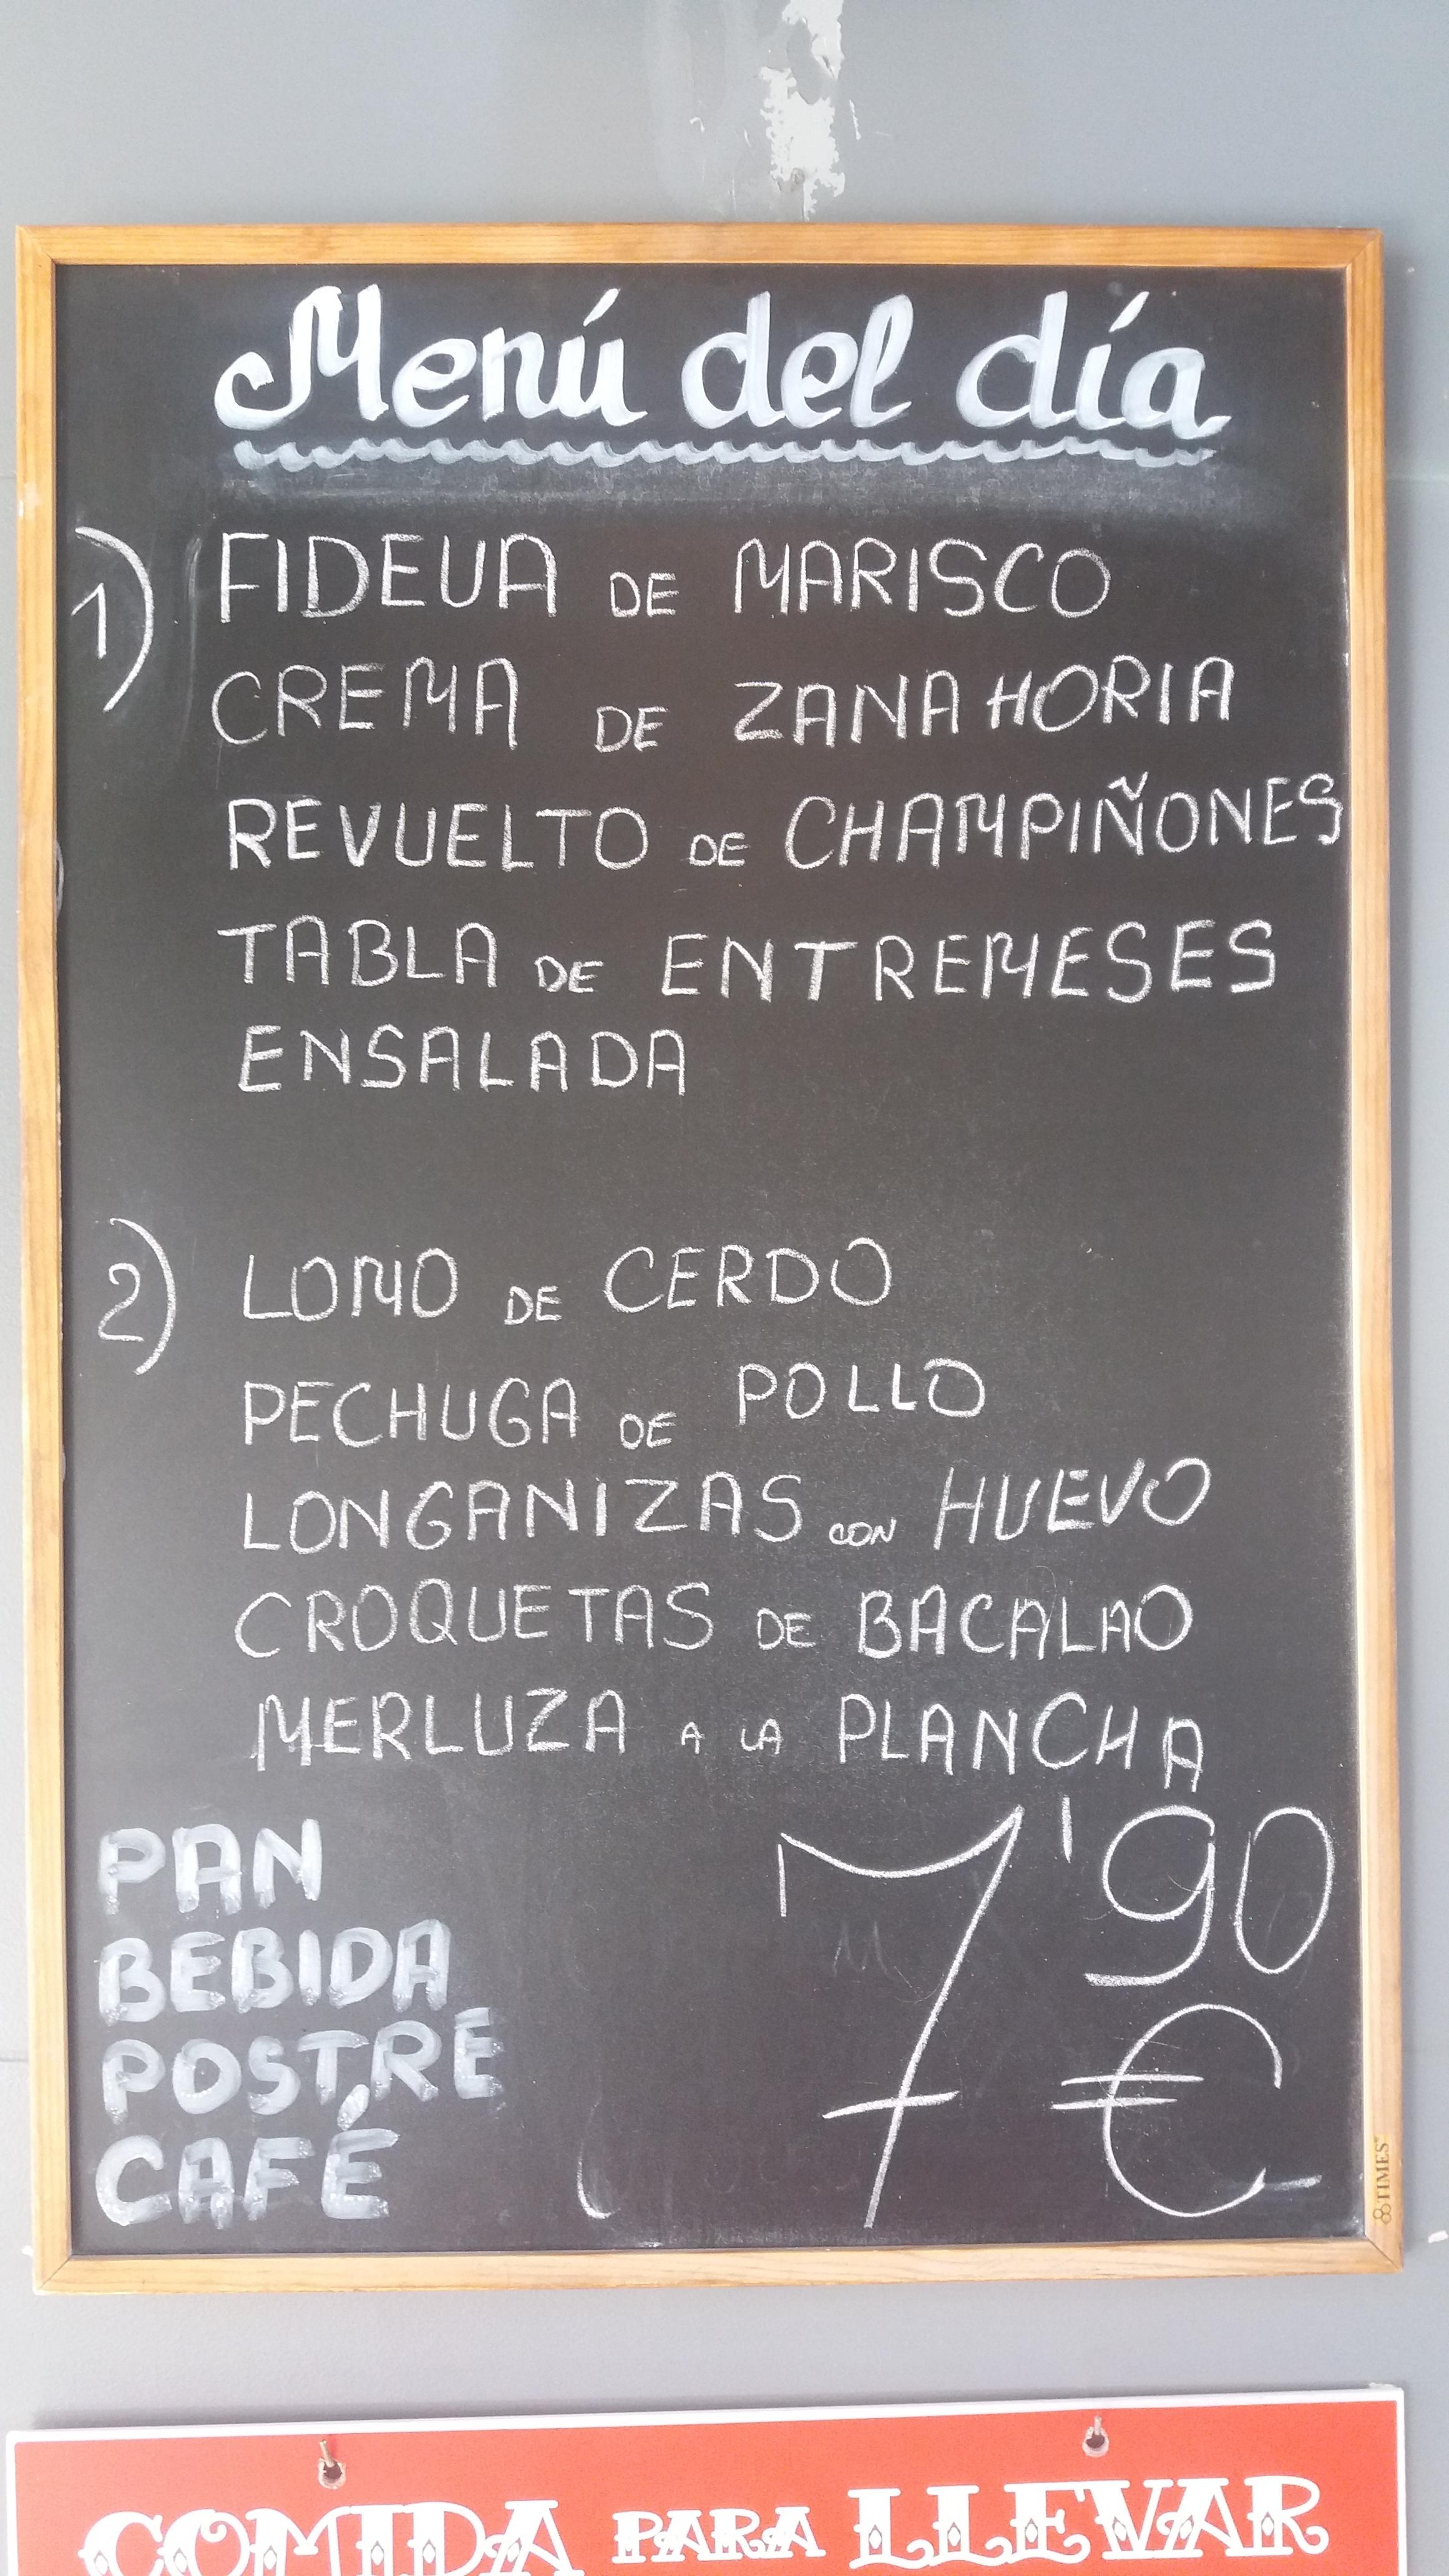 Menú del día
1) FIDEUA DE MARISCO
CREMA DE ZANAHORIA
REVUELTO DE CHAMPIÑONES
TABLA DE ENTREMESES
ENSALADA
2) LOMO DE CERDO
PECHUGA DE POLLO
LONGANIZAS CON HUEVO
CROQUETAS DE BACALAO
MERLUZA A LA PLANCHA
PAN
BEBIDA
POSTRE
CAFÉ
7'90
€
TIMES
COMIDA PARA LLEVAR